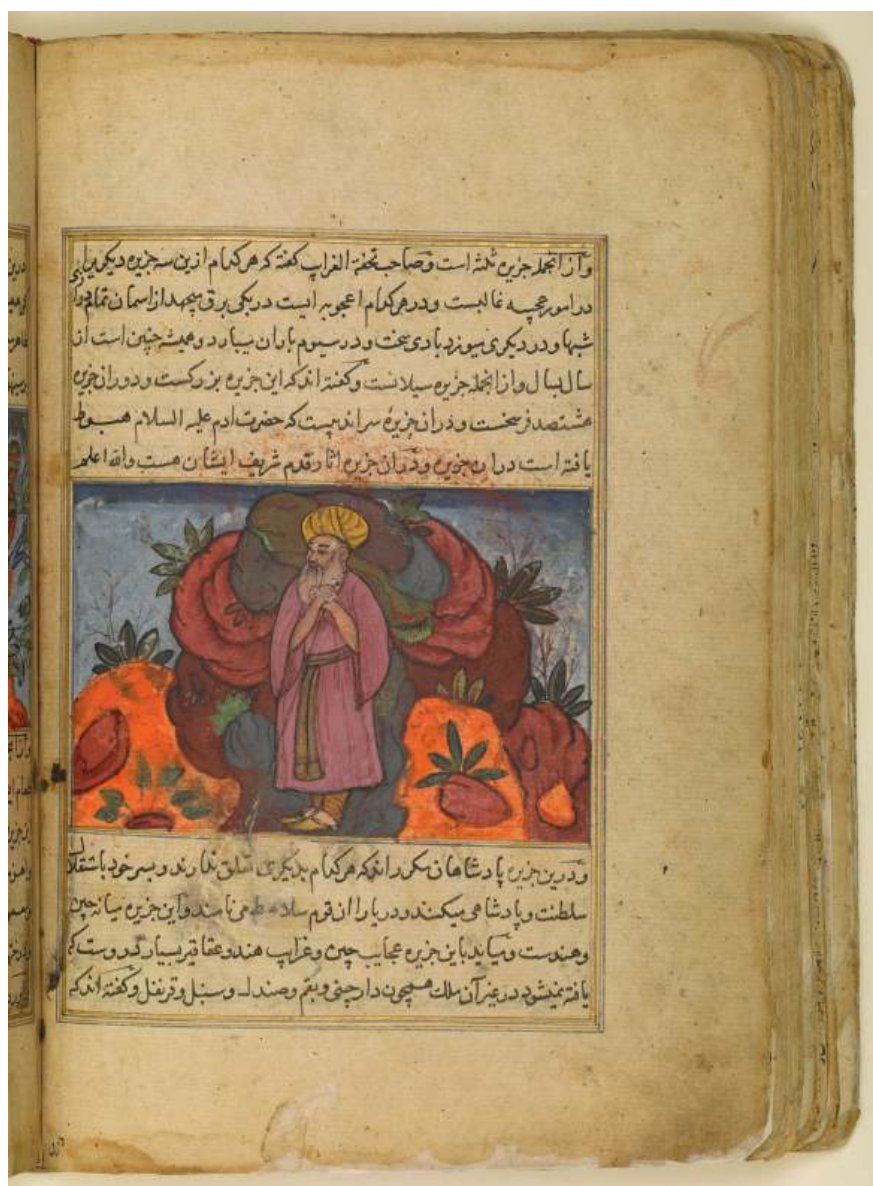 وازانجمله جزیره ثلثه است وصاحب تحفة الغرایب کفته که هر کدام ازین سه جزیره دیکری
در امور عجیبه غالبست ودر هر کدام اعجوبه ایست در یکی برق میجهد از اسمان تمام
شبها ودر دیکری میوزد بادی سخت ودر سیوم باران میبارد وهمیشه چنین است از
سال بسال وازانجمله جزیره سیلانست وکفته اند که این جزیره بزرکست ودوران جزیره
هشتصد فرسخست ودران جزیرهٔ سراندیبست که حضرت ادم علیه السلام هبوط
یافته است دران جزیره ودران جزیره اثار قدم شریف ایشان هست والله اعلم
ودرین جزیره پادشاهان اند که هر کدام بدیکری تعلق ندارند وبسر خود باستقلال
سلطنت وپادشاهی میکنند ودریا را ان قوم سلاهط می نامند واین جزیره میانه چین
وهندست ومیاید باین جزیره عجایب چین وغرایب هند وعقاقیر بسیار دروست که
یافته نمیشود در غیر آن ملک همچون دارچنی وبقم وصندل وسنبل وقرنفل وکفته اند که